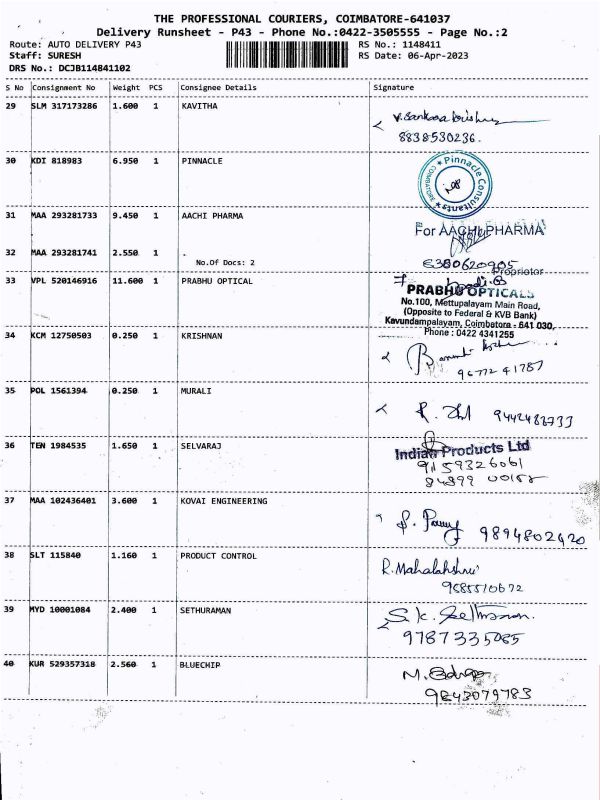 THE PROFESSIONAL COURIERS, COIMBATORE-641037
Delivery Runsheet - P43 - Phone No.:0422-3505555 - Page No.:2
Route: AUTO DELIVERY P43 RS No.: 1148411
Staff: SURESH RS Date: 06-Apr-2023
DRS No.: DCJB114841102
S No Consignment No Weight PCS Consignee Details Signature
29 SLM 317173286 1.600 1 KAVITHA
8838530236.
30 KDI 818983 6.950 1 PINNACLE
Pinnacle Consultants
COIMBATORE
31 MAA 293281733 9.450 1 AACHI PHARMA
For AACHI PHARMA
32 MAA 293281741 2.550 1 .
No.Of Docs: 2
6380620905
Proprietor
33 VPL 520146916 11.600 1 PRABHU OPTICAL
PRABHU OPTICALS
No.100, Mettupalayam Main Road,
(Opposite to Federal & KVB Bank)
Kavundampalayam, Coimbatore - 641 030.
Phone : 0422 4341255
34 KCM 12750503 0.250 1 KRISHNAN
96772 41787
35 POL 1561394 0.250 1 MURALI
36 TEN 1984535 1.650 1 SELVARAJ
Indian Products Ltd
9159326061
37 MAA 102436401 3.600 1 KOVAI ENGINEERING
9894802420
38 SLT 115840 1.160 1 PRODUCT CONTROL
R. Mahalakshmi
39 MYD 10001084 2.400 1 SETHURAMAN
S.K. Sethuraman.
9787335085
40 KUR 529357318 2.560 1 BLUECHIP
9843079783